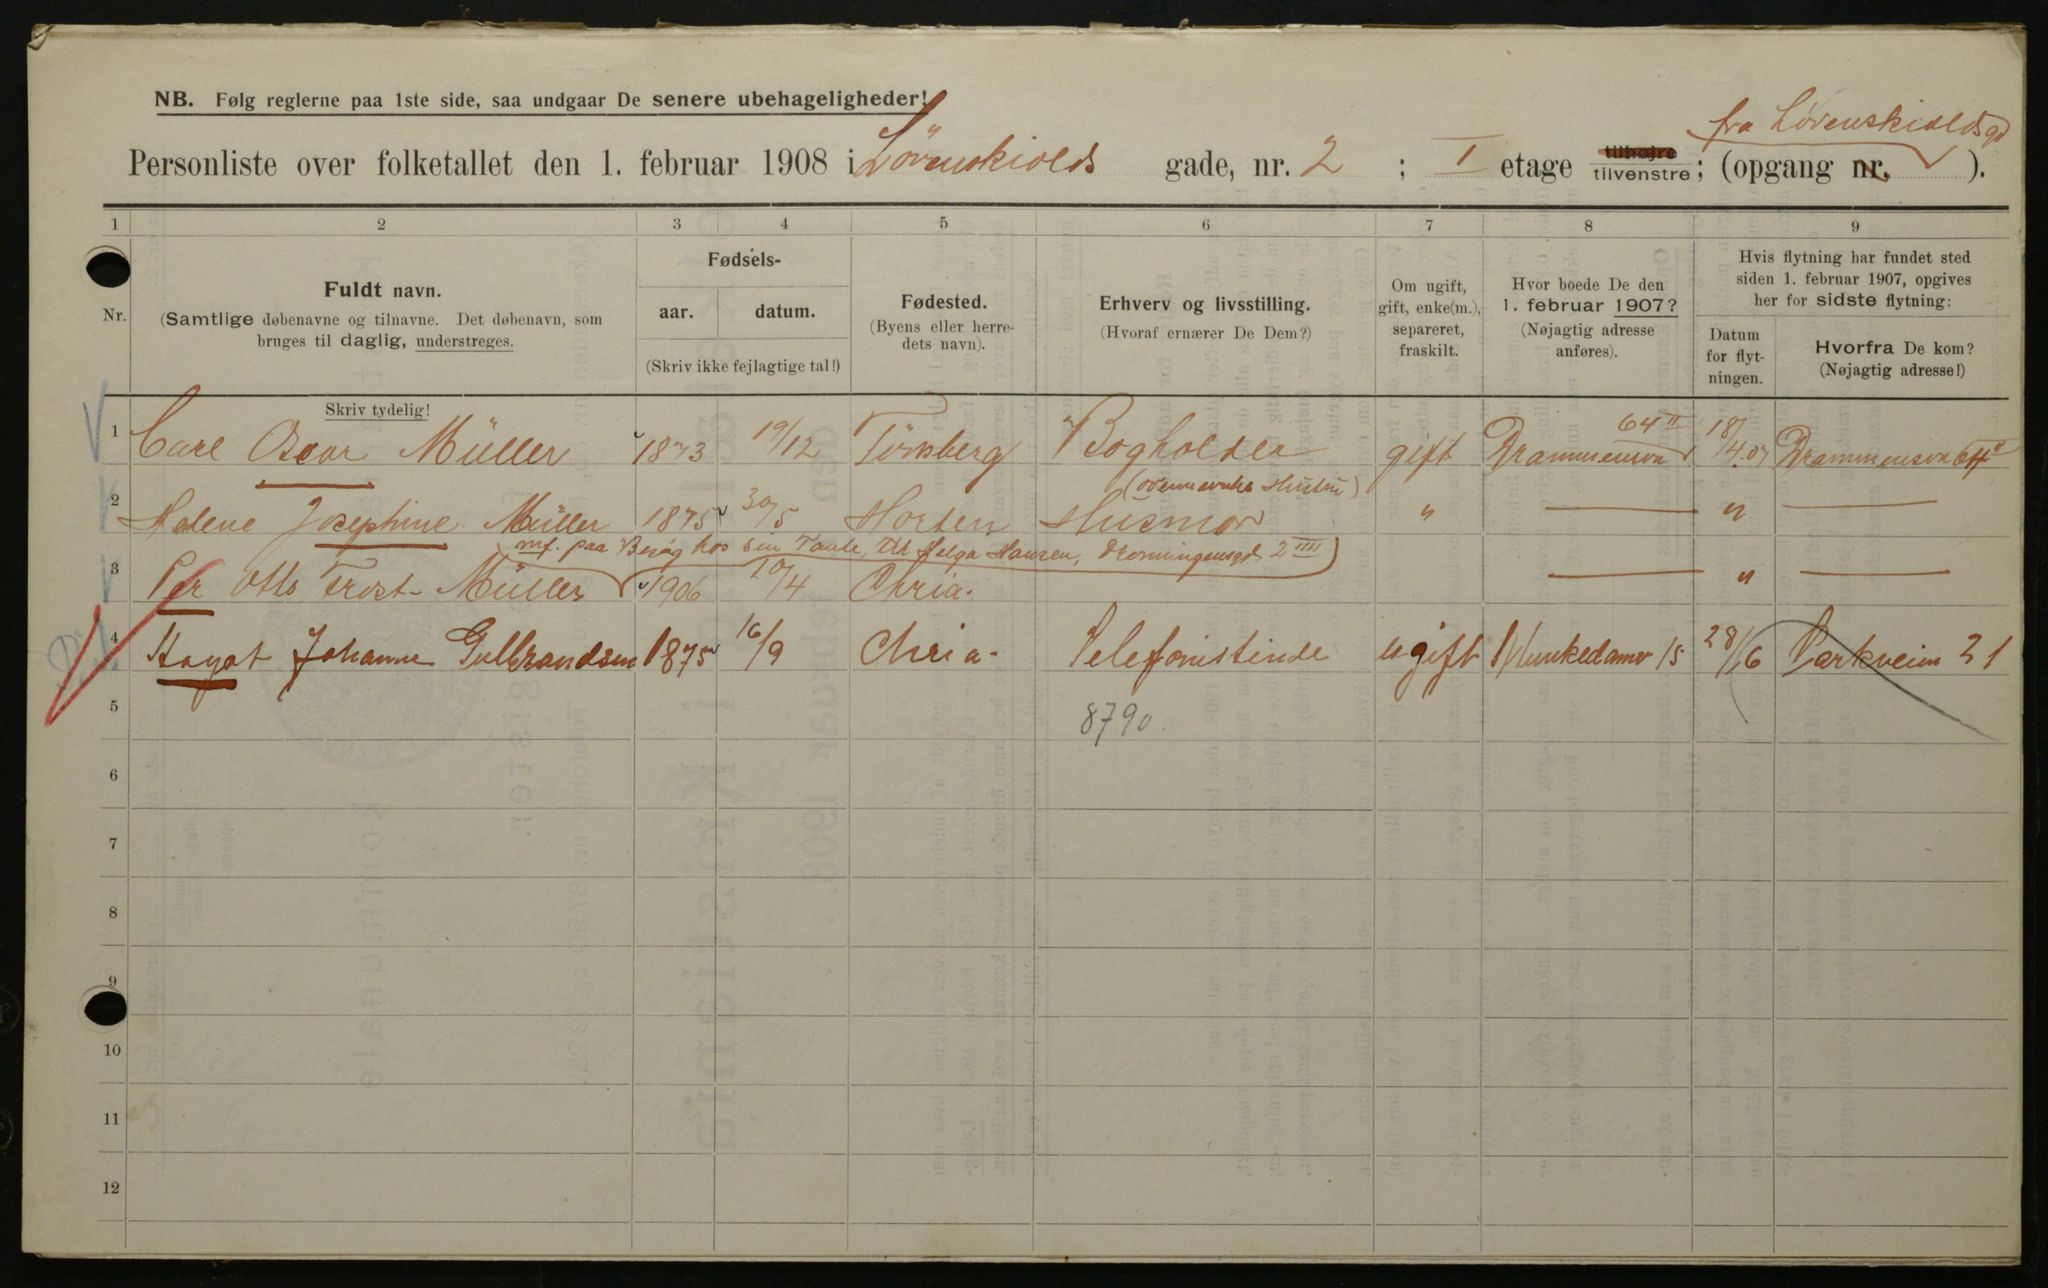 NB. Følg reglerne paa 1ste side, saa undgaar De senere ubehageligheder!
fra Løvenskioldsgd
Personliste over folketallet den 1. februar 1908 i Lövenskiolds gade, nr. 2 ; I etage tilhøjre tilvenstre; (opgang nr. ).
1 2 3 4 5 6 7 8 9
Nr.
Fuldt navn.
(Samtlige døbenavne og tilnavne. Det døbenavn, som
bruges til daglig, understreges.
Skriv tydelig!
Fødsels-
aar. datum.
(Skriv ikke fejlagtige tal!)
Fødested.
(Byens eller herre-
dets navn).
Erhverv og livsstilling.
(Hvoraf ernærer De Dem?)
Om ugift,
gift, enke(m.),
separeret,
fraskilt.
Hvor boede De den
1. februar 1907?
(Nøjagtig adresse
anføres).
Hvis flytning har fundet sted
siden 1. februar 1907, opgives
her for sidste flytning:
Datum
for flyt-
ningen.
Hvorfra De kom?
(Nøjagtig adresse!)
1 Carl Oscar Müller 1873 19/12 Tönsberg Bogholder gift Drammensvn 64 II 18/4.07 Drammensvn 64 II
(ovennævnte Hustru)
2 Helene Josephine Müller 1875 30/5 Horten Husmor " — " —
mf. paa Besøg hos sin Tante, Frk Helga Hansen, Dronningensgd 2 IIII
3 Per Otto Frost-Müller 1906 10/4 Chria. — " —
4 Johanne Gulbrandsen 1875 16/9 Chria. Telefonistinde ugift Munkedamv 15 28/16 Parkveien 21
5 8790
6
7
8
9
10
11
12